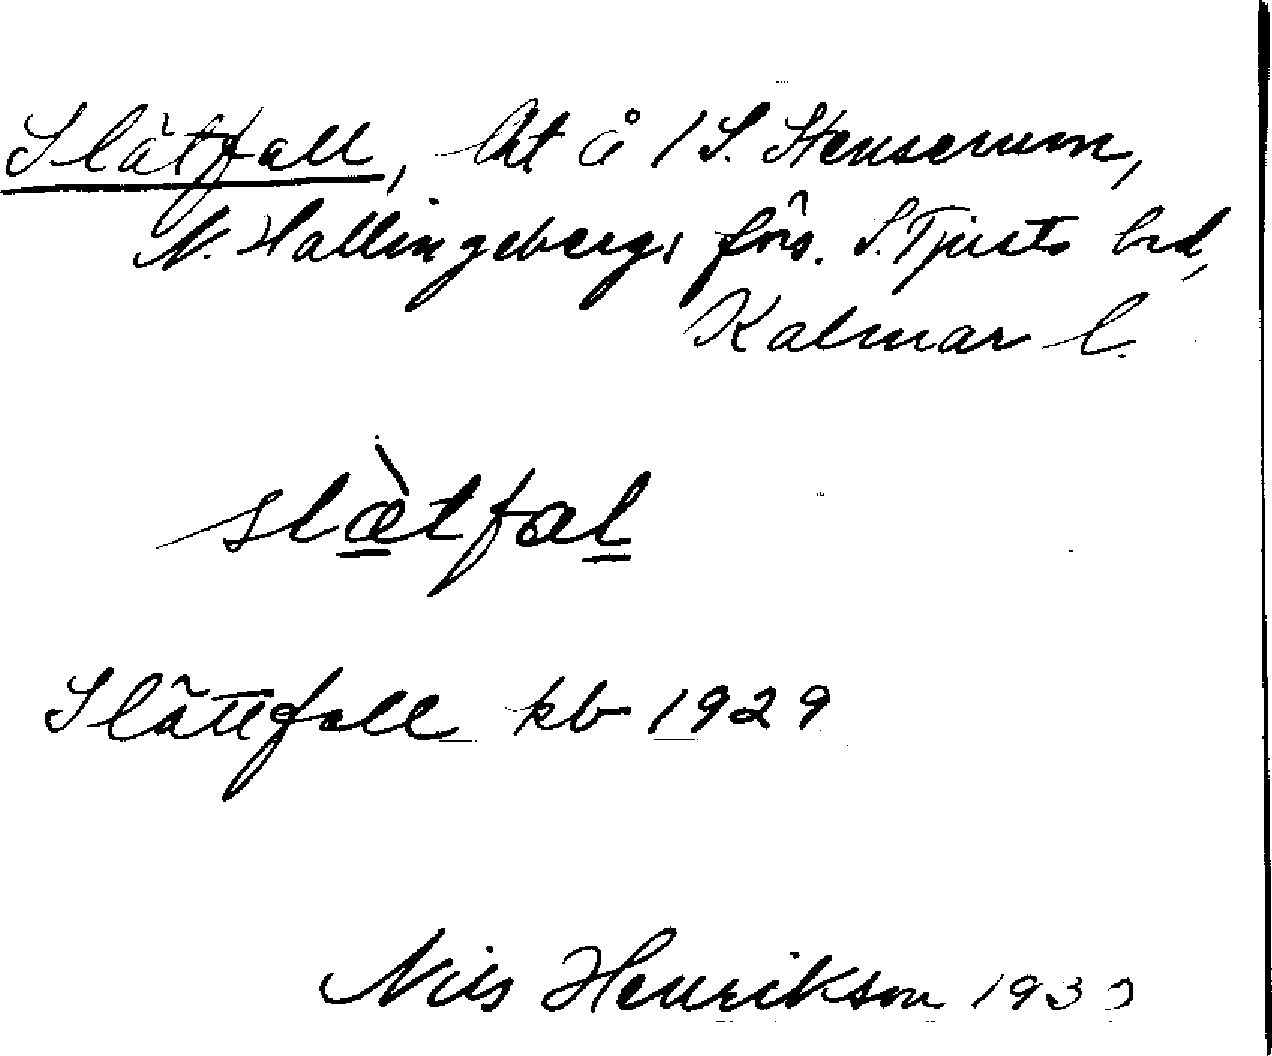 Slätfall, lht å 1 S. Stenserum,
N. Hallingebergs förs. S. Tjusts hd,
Kalmar l.
slæ̀tfal
Slättfall kb 1929
Nils Henrikson 193